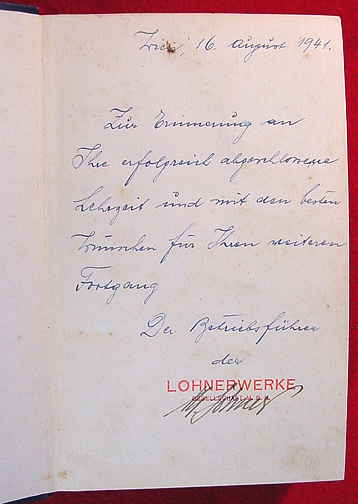 Wien, 16. August 1941.
Zur Erinnerung an
Ihre erfolgreich abgeschlossene
Lehrzeit und mit den besten
Wünschen für Ihren weiteren
Fortgang
Der Betriebsführer
der
LOHNERWERKE
GESELLSCHAFT M. B. H.